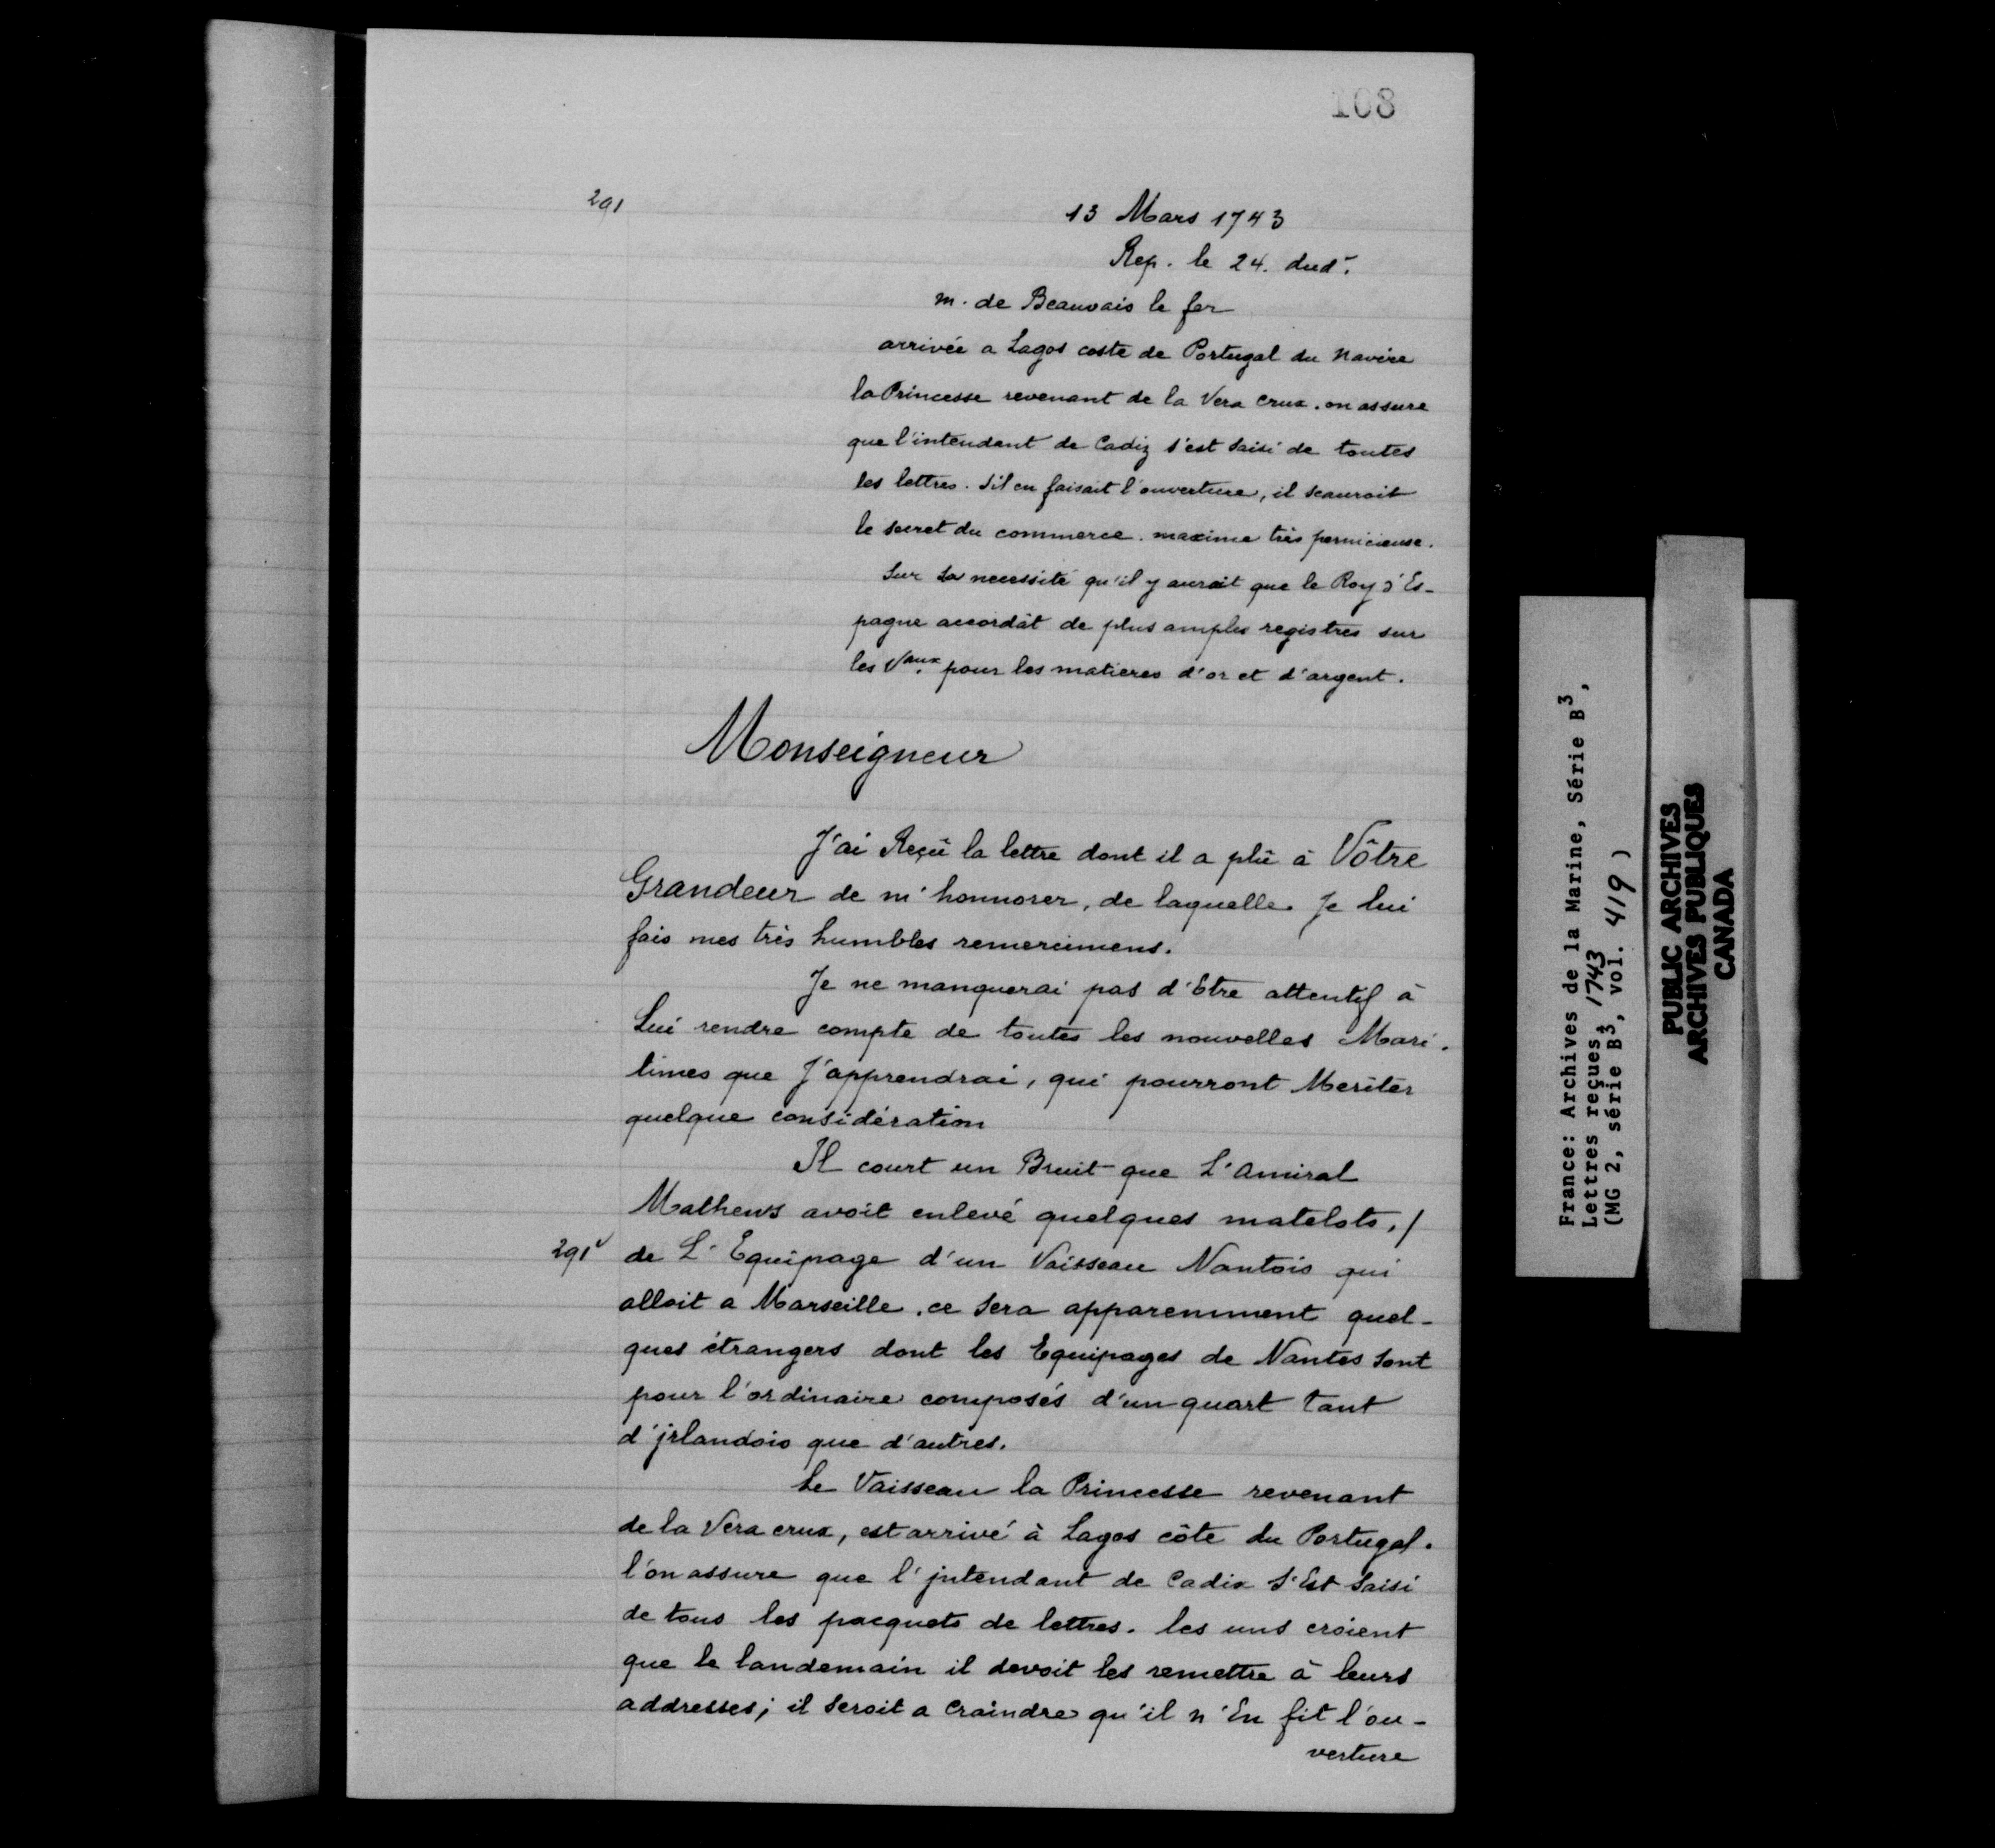 108
291
13 Mars 1743
Rep. le 24. dud.
m. de Beauvais le fer
arrivée a Lagos coste de Portugal du Navire
la Princesse revenant de la Vera Crux. on assure
que l'intendant de Cadiz s'est saisi de toutes
les lettres. s'il en faisait l'ouverture, il scauroit
le secret du commerce. maxime très pernicieuse.
Sur la necessité qu'il y aurait que le Roy d'Es-
pagne accordât de plus amples registres sur
les Vaux. pour les matieres d'or et d'argent.
Monseigneur
J'ai Reçû la lettre dont il a plû à Vôtre
Grandeur de m'honnorer, de laquelle. Je lui
fais mes très humbles remercimens.
Je ne manquerai pas d'Etre attentif à
Lui rendre compte de toutes les nouvelles Mari-
times que J'apprendrai, qui pourront Meriter
quelque considération
Il court un Bruit que L'Amiral
Mathews avoit enlevé quelques matelots, /
291v de L'Equipage d'un Vaisseau Nantois qui
alloit a Marseille. ce sera apparemment quel-
ques étrangers dont les Equipages de Nantes sont
pour l'ordinaire composés d'un quart tant
d'jrlandois que d'autres.
Le Vaisseau la Princesse revenant
de la Vera crux, est arrivé à Lagos côte du Portugal.
l'on assure que l'jntendant de Cadix s'Est saisi
de tous les pacquets de lettres. les uns croient
que le landemain il devoit les remettre à leurs
addresses; il seroit a Craindre qu'il n'En fit l'ou-
verture
France: Archives de la Marine, Série B3,
Lettres reçues, 1743
(MG 2, série B3, vol. 419)
PUBLIC ARCHIVES
ARCHIVES PUBLIQUES
CANADA